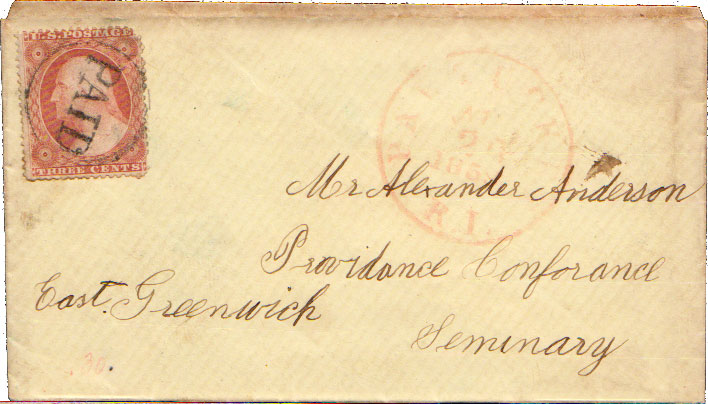 U.S. POSTAGE
PAID
THREE CENTS
R.I.
Mr Alexander Anderson
Providance Conforance
East. Greenwich
Seminary
30